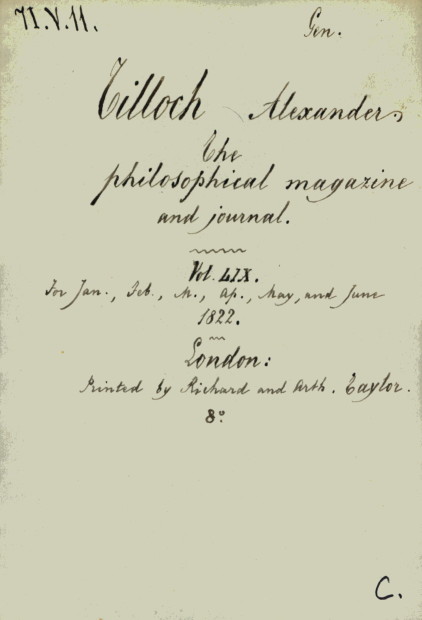 71.V.11.
Gen.
Tilloch Alexander,
The
philosophical magazine
and journal.
Vol. LIX.
For Jan., Feb., M., Ap., May, and June
1822.
London:
Printed by Richard and Arth. Taylor.
8°
C.